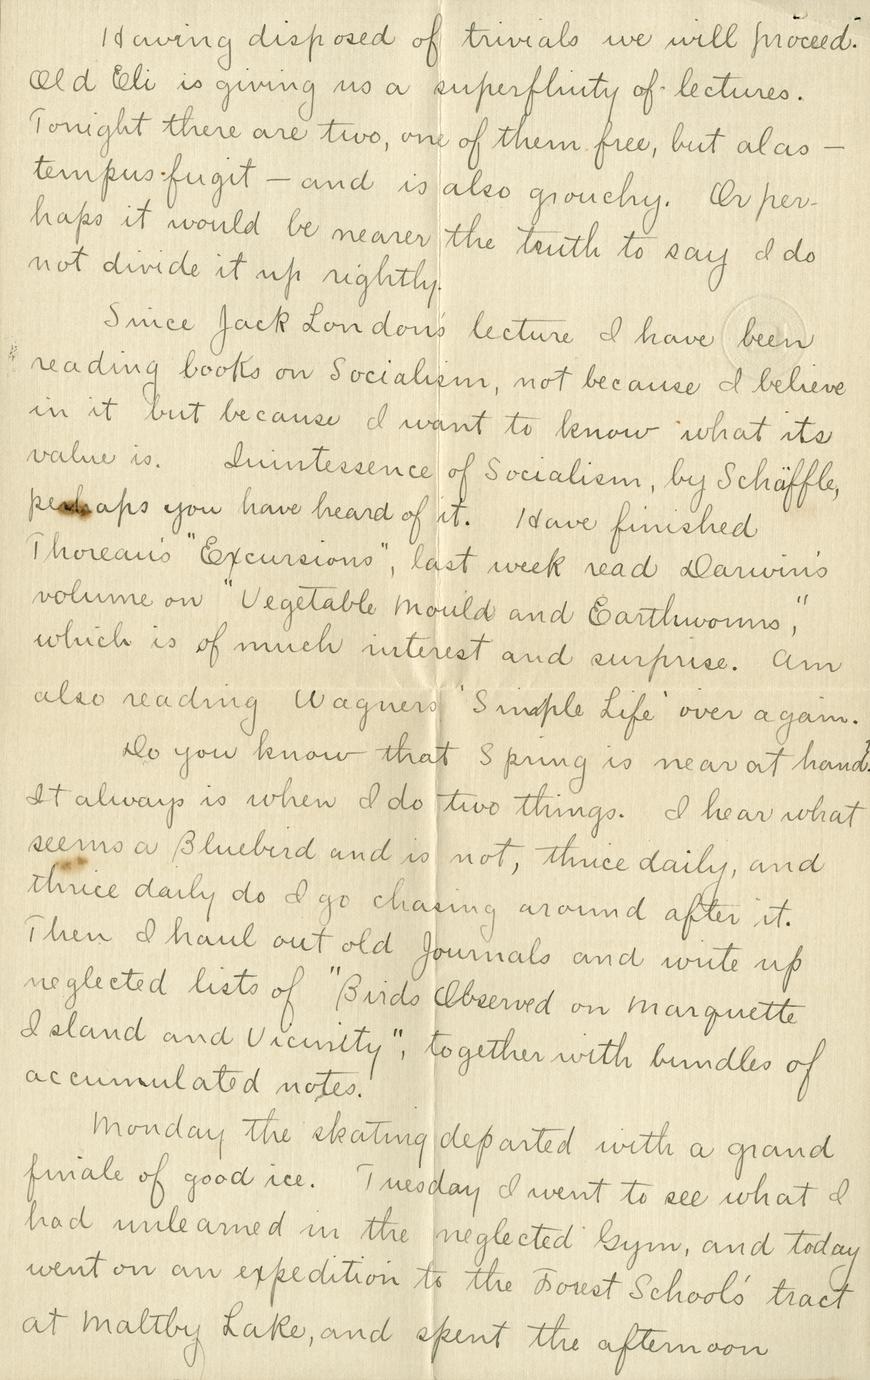 Having disposed of trivials we will proceed.
Old Eli is giving us a superfluity of lectures.
Tonight there are two, one of them free, but alas —
tempus fugit — and is also grouchy. Or per-
haps it would be nearer the truth to say I do
not divide it up rightly.
Since Jack London's lecture I have been
reading books on Socialism, not because I believe
in it but because I want to know what its
value is. Quintessence of Socialism, by Schäffle,
perhaps you have heard of it. Have finished
Thoreau's "Excursions", last week read Darwin's
volume on "Vegetable Mould and Earthworms,"
which is of much interest and surprise. Am
also reading Wagners 'Simple Life' over again.
Do you know that Spring is near at hand?
It always is when I do two things. I hear what
seems a Bluebird and is not, thrice daily, and
thrice daily do I go chasing around after it.
Then I haul out old Journals and write up
neglected lists of "Birds Observed on Marquette
Island and Vicinity", together with bundles of
accumulated notes.
Monday the skating departed with a grand
finale of good ice. Tuesday I went to see what I
had unlearned in the neglected Gym, and today
went on an expedition to the Forest School's tract
at Maltby Lake, and spent the afternoon